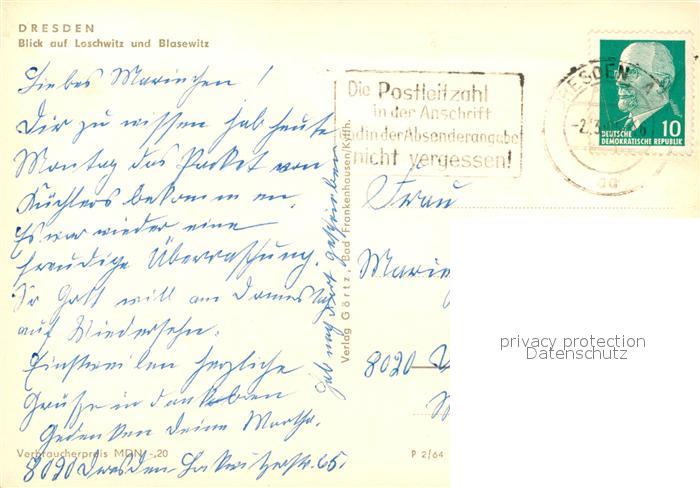 DRESDEN
Blick auf Loschwitz und Blasewitz
Liebes Marinchen!
Dir zu wissen hab heute
Montag das Packet von
Küchlers bekommen.
Es war wieder eine
freudige Überraschung.
So Gott will am
auf Wiedersehn.
Einstweilen herzliche
Grüße in dankbaren
Gedenken Deine Martha.
8020 Dresden
Verbraucherpreis MDN -,20
hab nach dort geschrieben
Verlag Görtz, Bad Frankenhausen/Kyffh.
P 2/64
Die Postleitzahl
in der Anschrift
und in der Absenderangabe
nicht vergessen!
DRESDEN A
10
DEUTSCHE
DEMOKRATISCHE REPUBLIK
Frau
8020
privacy protection
Datenschutz